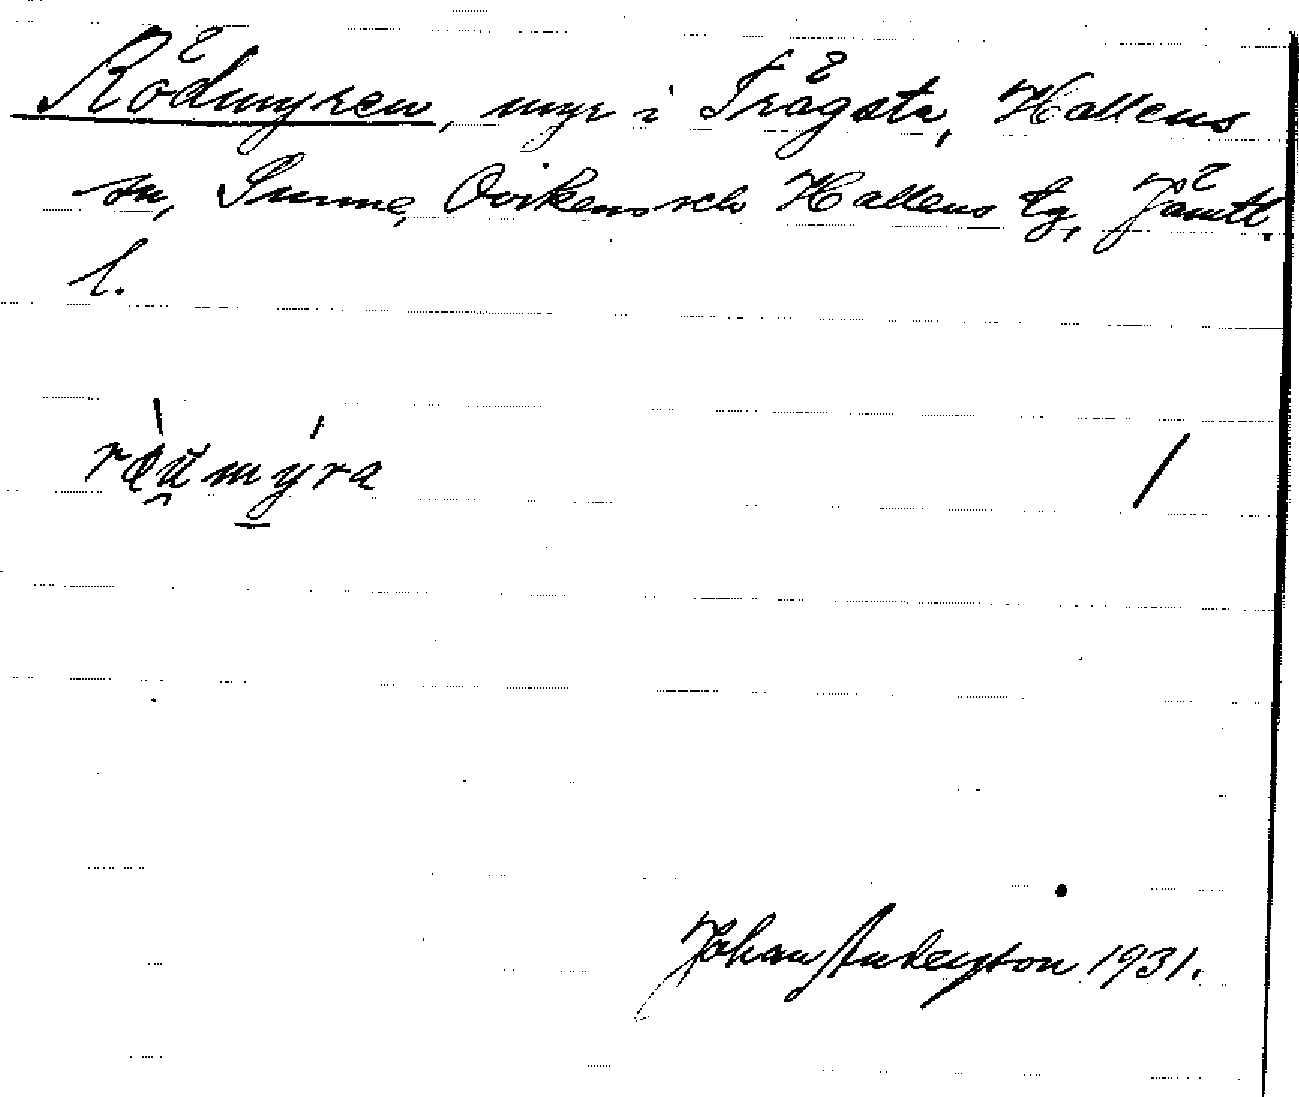 Rödmyren, myr i Trågsta, Hallens
sn, Sunne, Ovikens och Hallens tg, Jämtl.
l.
ràu̯mýra
/
Johan Anderson 1931.